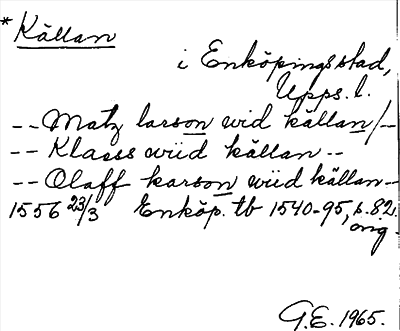 *Källan
i Enköpings stad,
Upps. l.
-- Matz larson wid källan/--
-- Klaess wiid källan --
-- Olaff karson wiid källan --
1556 23/3 Enköp. tb 1540-95, s. 82.
orig.
G.E. 1965.